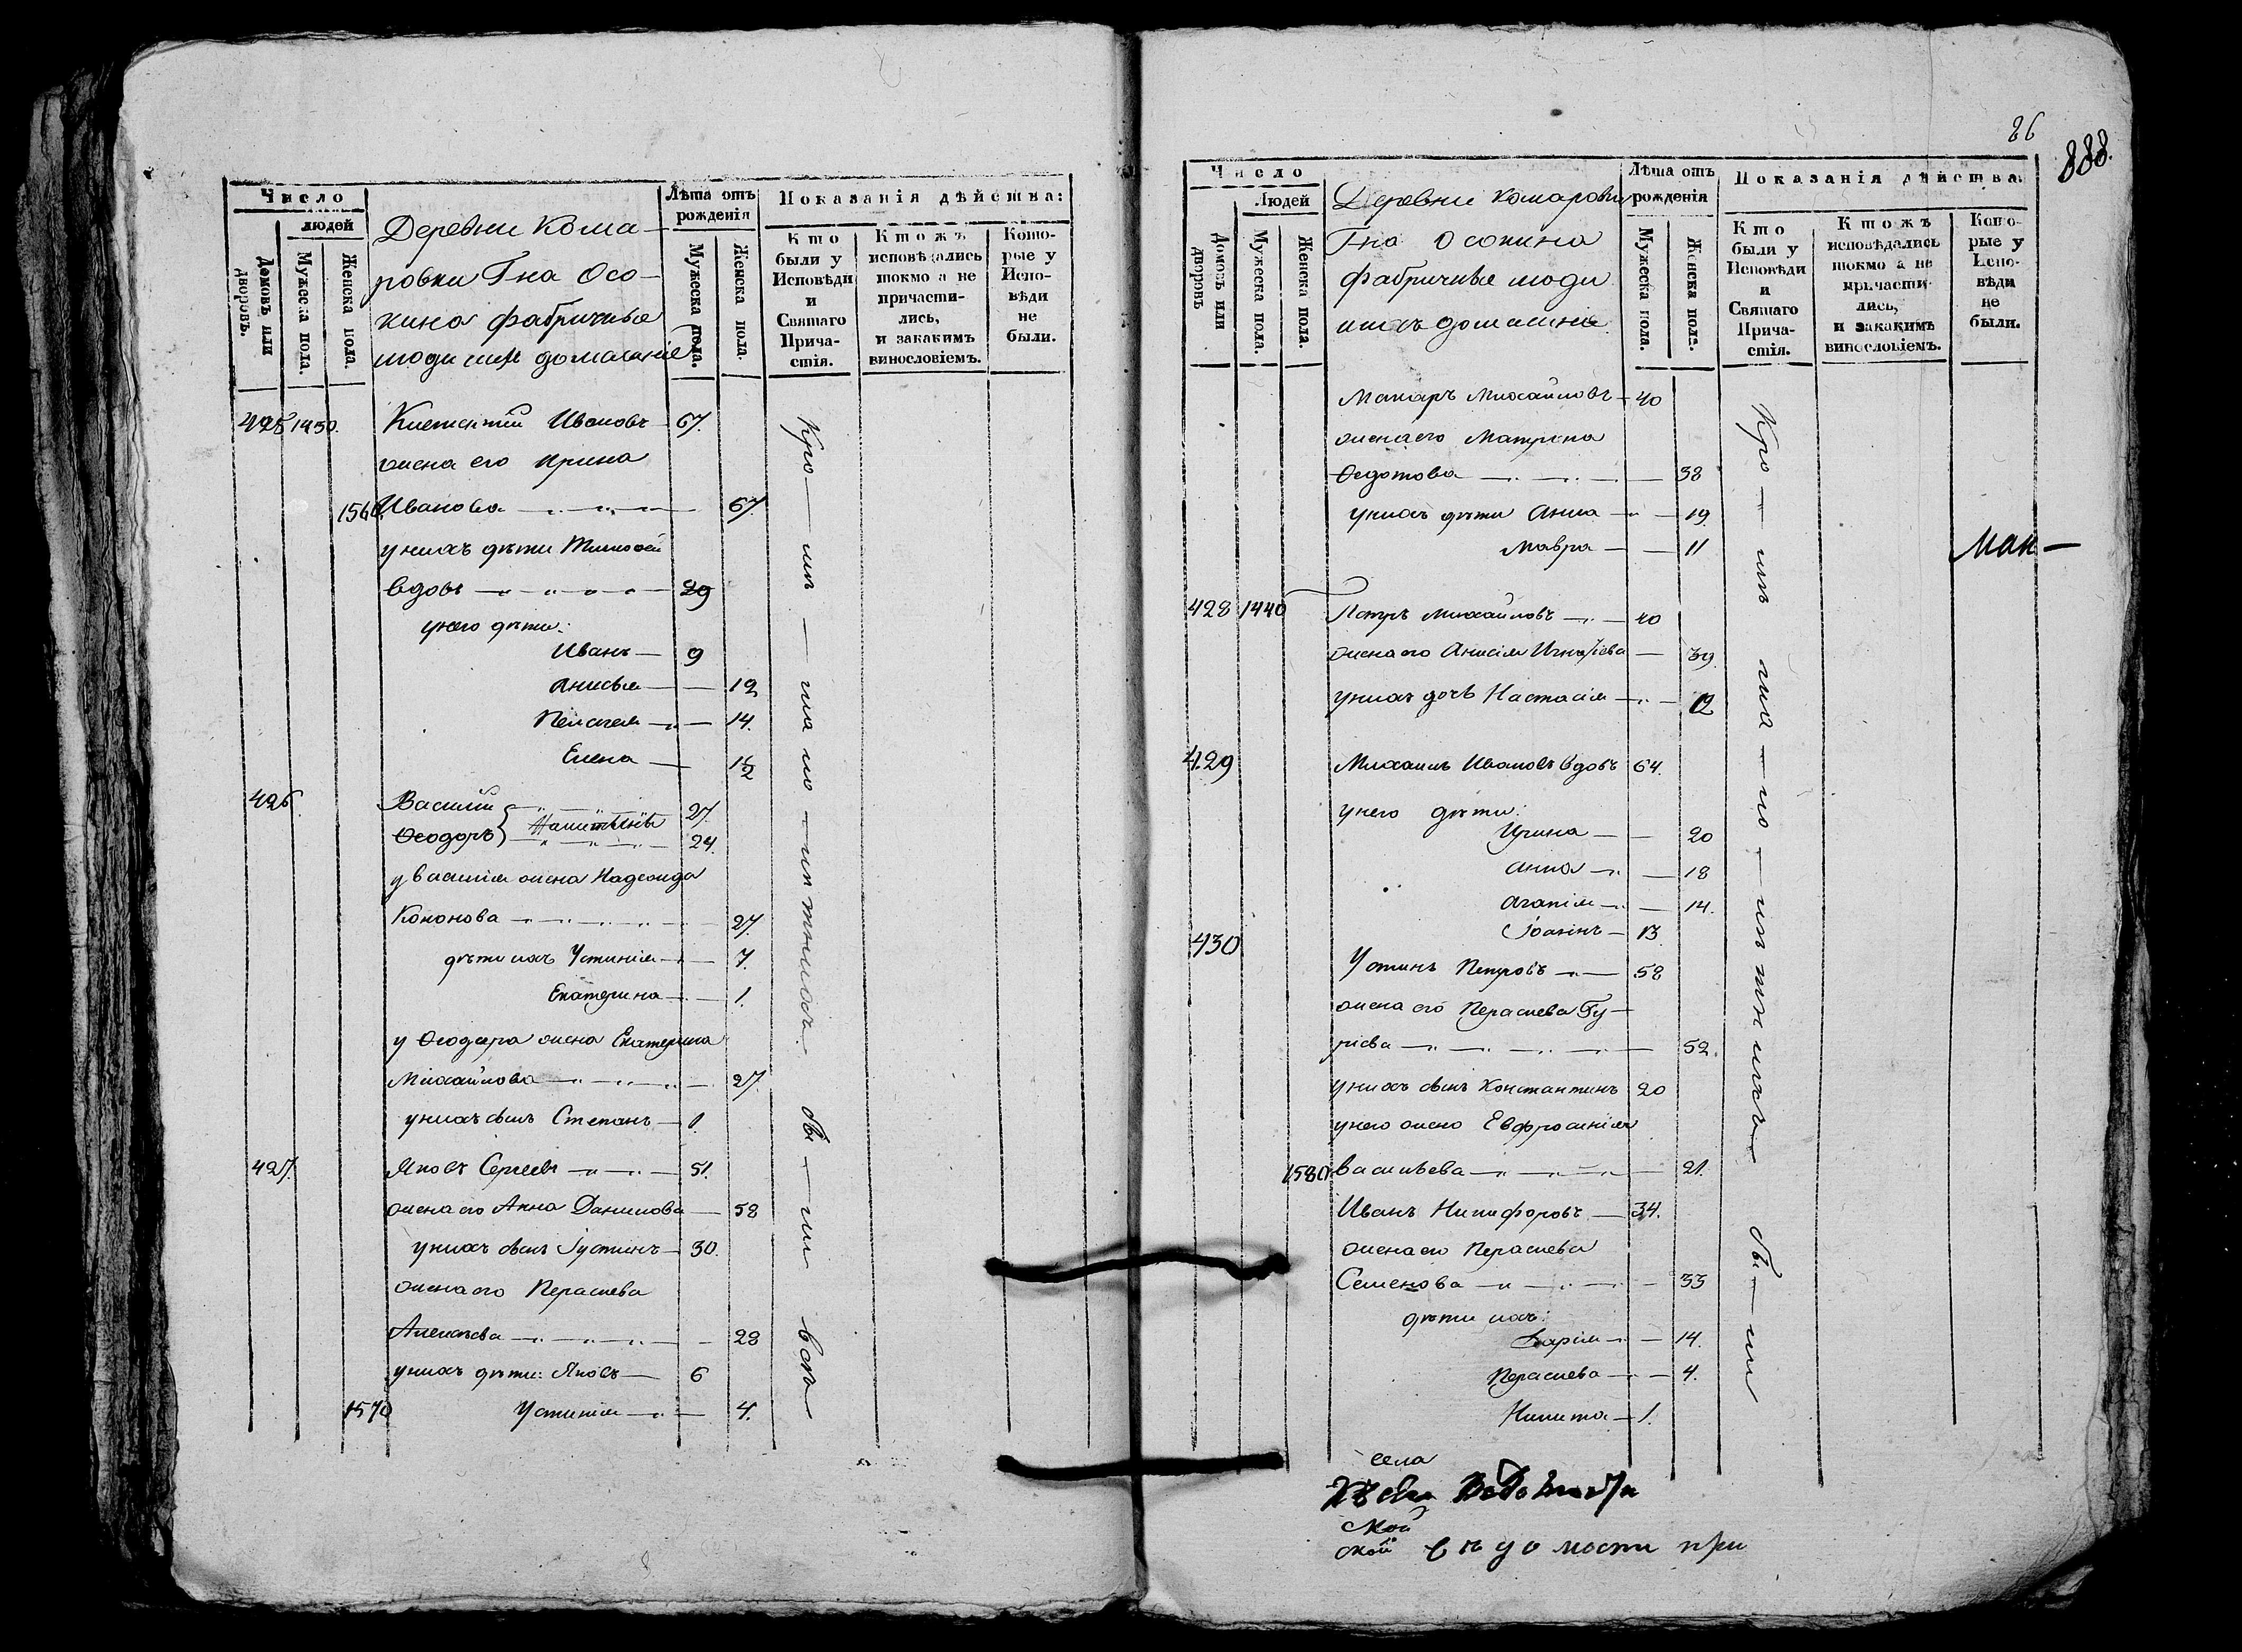 Число
людей
Домовъ или дворовъ.
Мужеска пола.
Женска пола.
Деревни Кома-
ровки Гна Осо-
кина фабричные
люди ихъ домашніе
Лѣта отъ рожденія
Мужеска пола.
Женска пола.
Показанія дѣйства:
Кто были у Исповѣди и Святаго Причастія.
Ктожъ исповѣдались токмо а не причастились, и закакимъ винословіемъ.
Которые у Исповѣди не были.
425 1430. Климентій Ивановъ 67.
жена его Ирина
1560. Иванова 67.
у нихъ дѣти Тимофей
вдовъ 29
у него дѣти:
Иванъ 9
Анисья 12
Пелагея 14.
Елена
426. Василій 27.
Ѳеодоръ 24.
у Василія жена Надежда
Кононова 27.
дѣти ихъ Устинія 7.
Екатерина 1.
у Ѳеодора жена Екатерина
Михайлова 27.
у нихъ сынъ Степанъ 1.
427. Яковъ Сергѣевъ 51.
жена его Анна Данилова 58
у нихъ сынъ Іустинъ 30.
жена его Параскева
Алексѣева 28
у нихъ дѣти: Яковъ 6
1570 Устинія 4.
бы-ли всѣ
86
888.
Число
Людей
Домовъ или дворовъ
Мужеска пола.
Женска пола.
Деревни Комаровки
Гна Осокина
фабричные люди
ихъ домашніе
Лѣта отъ рожденія
Мужеска пола.
Женска пола.
Показанія дѣйства.
Кто были у Исповѣди и Святаго Причастія.
Ктожъ исповѣдались токмо а не причастились, и закакимъ винословіемъ.
Которые у Исповѣди не были.
Макаръ Михайловъ 40
жена его Матрена
Ѳедотова 38
у нихъ дѣти Анна 19
Мавра 11
428 1440 Петръ Михайловъ 40
жена его Анисія Игнатіева 39.
у нихъ дочь Настасія 12
429 Михаилъ Ивановъ вдовъ 64.
у него дѣти:
Ирина 20
Анна 18
Агапія 14.
Іоаннъ 13
430 Устинъ Петровъ 58
жена его Параскева Гу-
ріева 52.
у нихъ сынъ Константинъ 20
у него жена Евфросинія
1580 Васильева 21.
Иванъ Никифоровъ 34.
жена его Параскева
Семенова 33
дѣти ихъ:
Дарія 14.
Параскева 4.
Никита 1.
бы-ли
села
ской
ской вѣдомости при